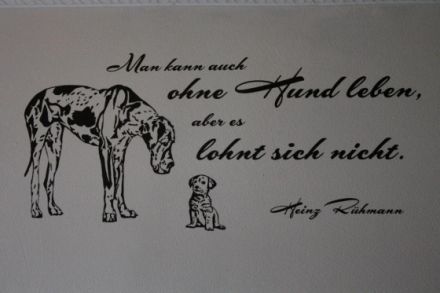 Man kann auch
ohne Hund leben,
aber es
lohnt sich nicht.
Heinz Rühmann